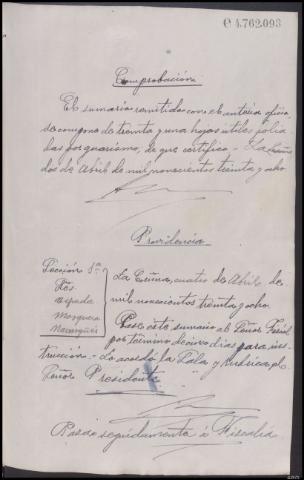 C 4.762.093
Comprobación
El sumario remitido con el anterior oficio
se compone de treinta y una hojas útiles folia
das por guarismo, de que certifico - La Coruña
dos de Abril de mil novecientos treinta y ocho
Providencia
Sección 1ª
Cepeda
Mosquera
La Coruña, cuatro de Abril de
mil novecientos treinta y ocho.
Pase este sumario al Señor Fiscal
por término de cinco dias para ins-
trucción - Lo acordó la Sala y rubrica el
Señor Presidente
Pasado seguidamente a Fiscalía